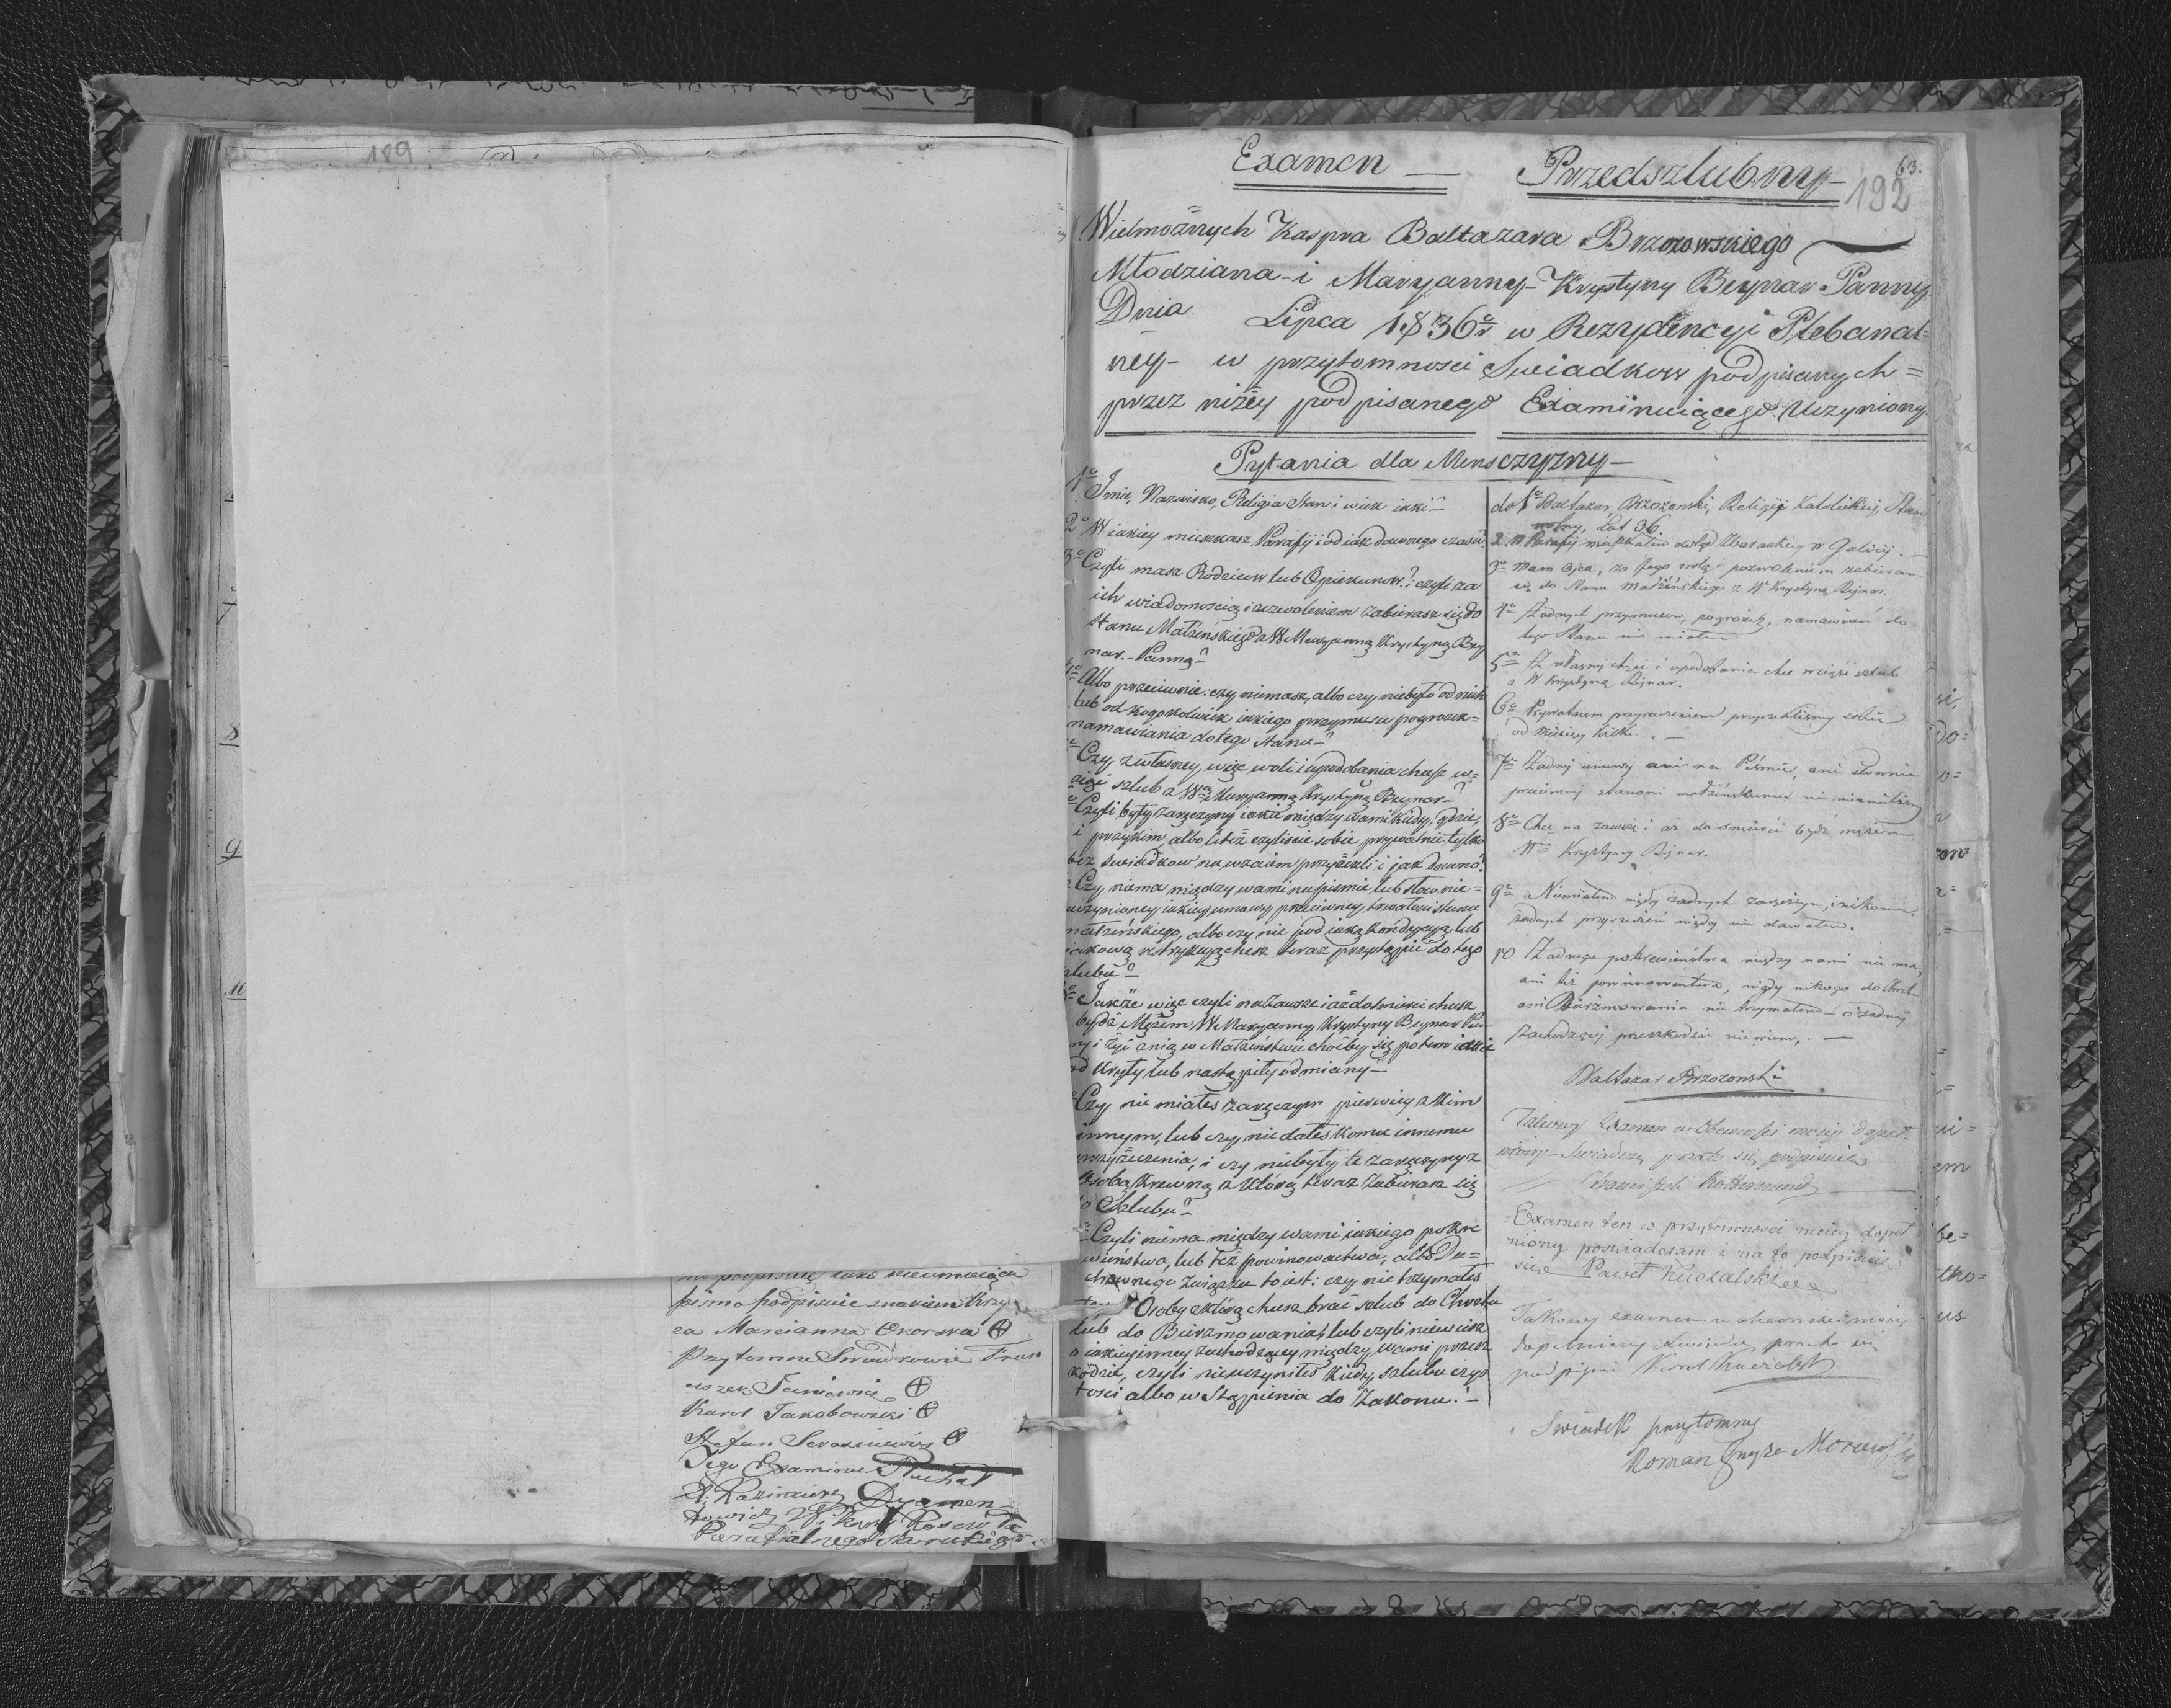 189
pisma podpisuie znakiem Krzy
ca Maricanna Okorska
Przytomne Swiadkowie Fran
ciszek
Karol Jakobowski
Stefan
Tego Examinu
Kazimierz Dyamen
towicz
Parafialnego
Examen — Przedszlubny —
63.
192
Wielmożnych Kaspra Baltazara Brzozowskiego
Młodziana - i Maryanny - Krystyny Beynar Panny
Dnia Lipca 1836 r. w Rezydencyi Plebanal=
ney - w przytomnosci Swiadkow podpisanych =
przez niżey podpisanego Examinuiącego Uczyniony
Pytania dla Mensczyzny —
1o Imie, Nazwisko, Religia Stan i wiek iaki -
2o W iakiey mieszkasz Parafij i od iak dawnego czasu?
3o Czyli masz Rodzicow lub Opiekunow? czyli za
ich wiadomością i zezwoleniem zabierasz się do
Stanu Małżeńskiego z W Maryanną Krystyną Bey
nar - Panną?
4o Albo przeciwnie: czy niemasz, albo czy niebyło od nich
lub od kogokolwiek iakiego przymusu pogrozek =
namawiania do tego stanu -?
Czy z własney, więc woli i upodobania chcesz w=
ziąć szlub z Wą Maryanną Krystyną Beynar -?
Czyli były zaręczyny iakie między wami kiedy, gdzie,
i przy kim, albo też czyliscie sobie prywatnie tylko
bez swiadkow nawzaiem przyżekli i jak dawno?
Czy niema między wami na pismie, lub słownie =
uczynioney iakiey umowy przeciwney, trwałosci stanu
małżeńskiego, albo czy nie pod iaką kondycyą, lub
iakową restrykcyą chcesz teraz przystąpić do tego
szlubu?
Jakże więc czyli na Zawsze i aż do smierci chcesz
bydź Mężem W Maryanny Krystyny Beynar Pan
ny i żyć z nią w Małżeństwie choćby się potem iakie
od kryły lub nastąpiły odmiany —
Czy nie miałes zaręczyn pierwiey z kim
innym, lub czy nie dałes komu innemu
przyżeczenia, i czy niebyły te zaręczyny z
Osobą krewną z którą teraz zabierasz się
do Szlubu?
Czyli niema między wami iakiego pokre
wieństwa, lub też powinowactwa, albo Du=
chownego Związku to iest: czy nie trzymałes
Osoby z którą chcesz brać szlub do Chrztu
lub do Bierzmowania, lub czyli niewiesz
o iakiey inney zachodzącey między wami przesz
kodzie, czyli nieuczyniłes kiedy szlubu czys
tosci albo wStąpienia do Zakonu? -
do 1o Baltazar Brzozowski, Religij Katolickiej, Stan
wolny, Lat 36.
2. W Parafij mieszkałem dotąd Zbarazkiey w Galicij. —
3o Mam Ojca, za Jego wolą i pozwoleniem zabieram
się do Stanu Małżeńskiego z W Krystyną Bejnar.
4o Żadnych przymusow, pogrożek, namawiań do
tego Stanu nie miałem
5o Z własnej chęci i upodobania chcę wziąść szlub
z W Krystyną Bejnar.
6o Prywatnem przyrzeczeniem przyrzekliśmy sobie
od miesięcy kilku. —
7o Żadnej umowy ani na Piśmie, ani słownie
przeciwnej stanowi małżeńskiemu nie mieliśmy
8o Chcę na zawsze i aż do smierci bydź mężem
Wej Krystyny Bejnar.
9o Niemiałem nigdy żadnych zaręczyn, i nikomu
żadnych przyrzeczeń nigdy nie dawałem.
10 Żadnego pokrewieństwa między nami nie ma,
ani też powinowactwa, nigdy nikogo do Chrztu
ani Bierzmowania nie trzymałem — o żadnej
zachodzącej przeszkodzie nie wiem. —
Baltazar Brzozowski
Takowy Examen w Obecnosci mojej dopeł
niony - Swiadczę y na to się podpisuię
Examen ten w przytomnosci moiey dopeł
niony poswiadczam i na to podpisuie
sie Paweł Kuczalski
Takowy examen w obecnosci mojej
dopełniony swiadczę przeto się
podpisuie Karol
Swiadek przytomny
Roman